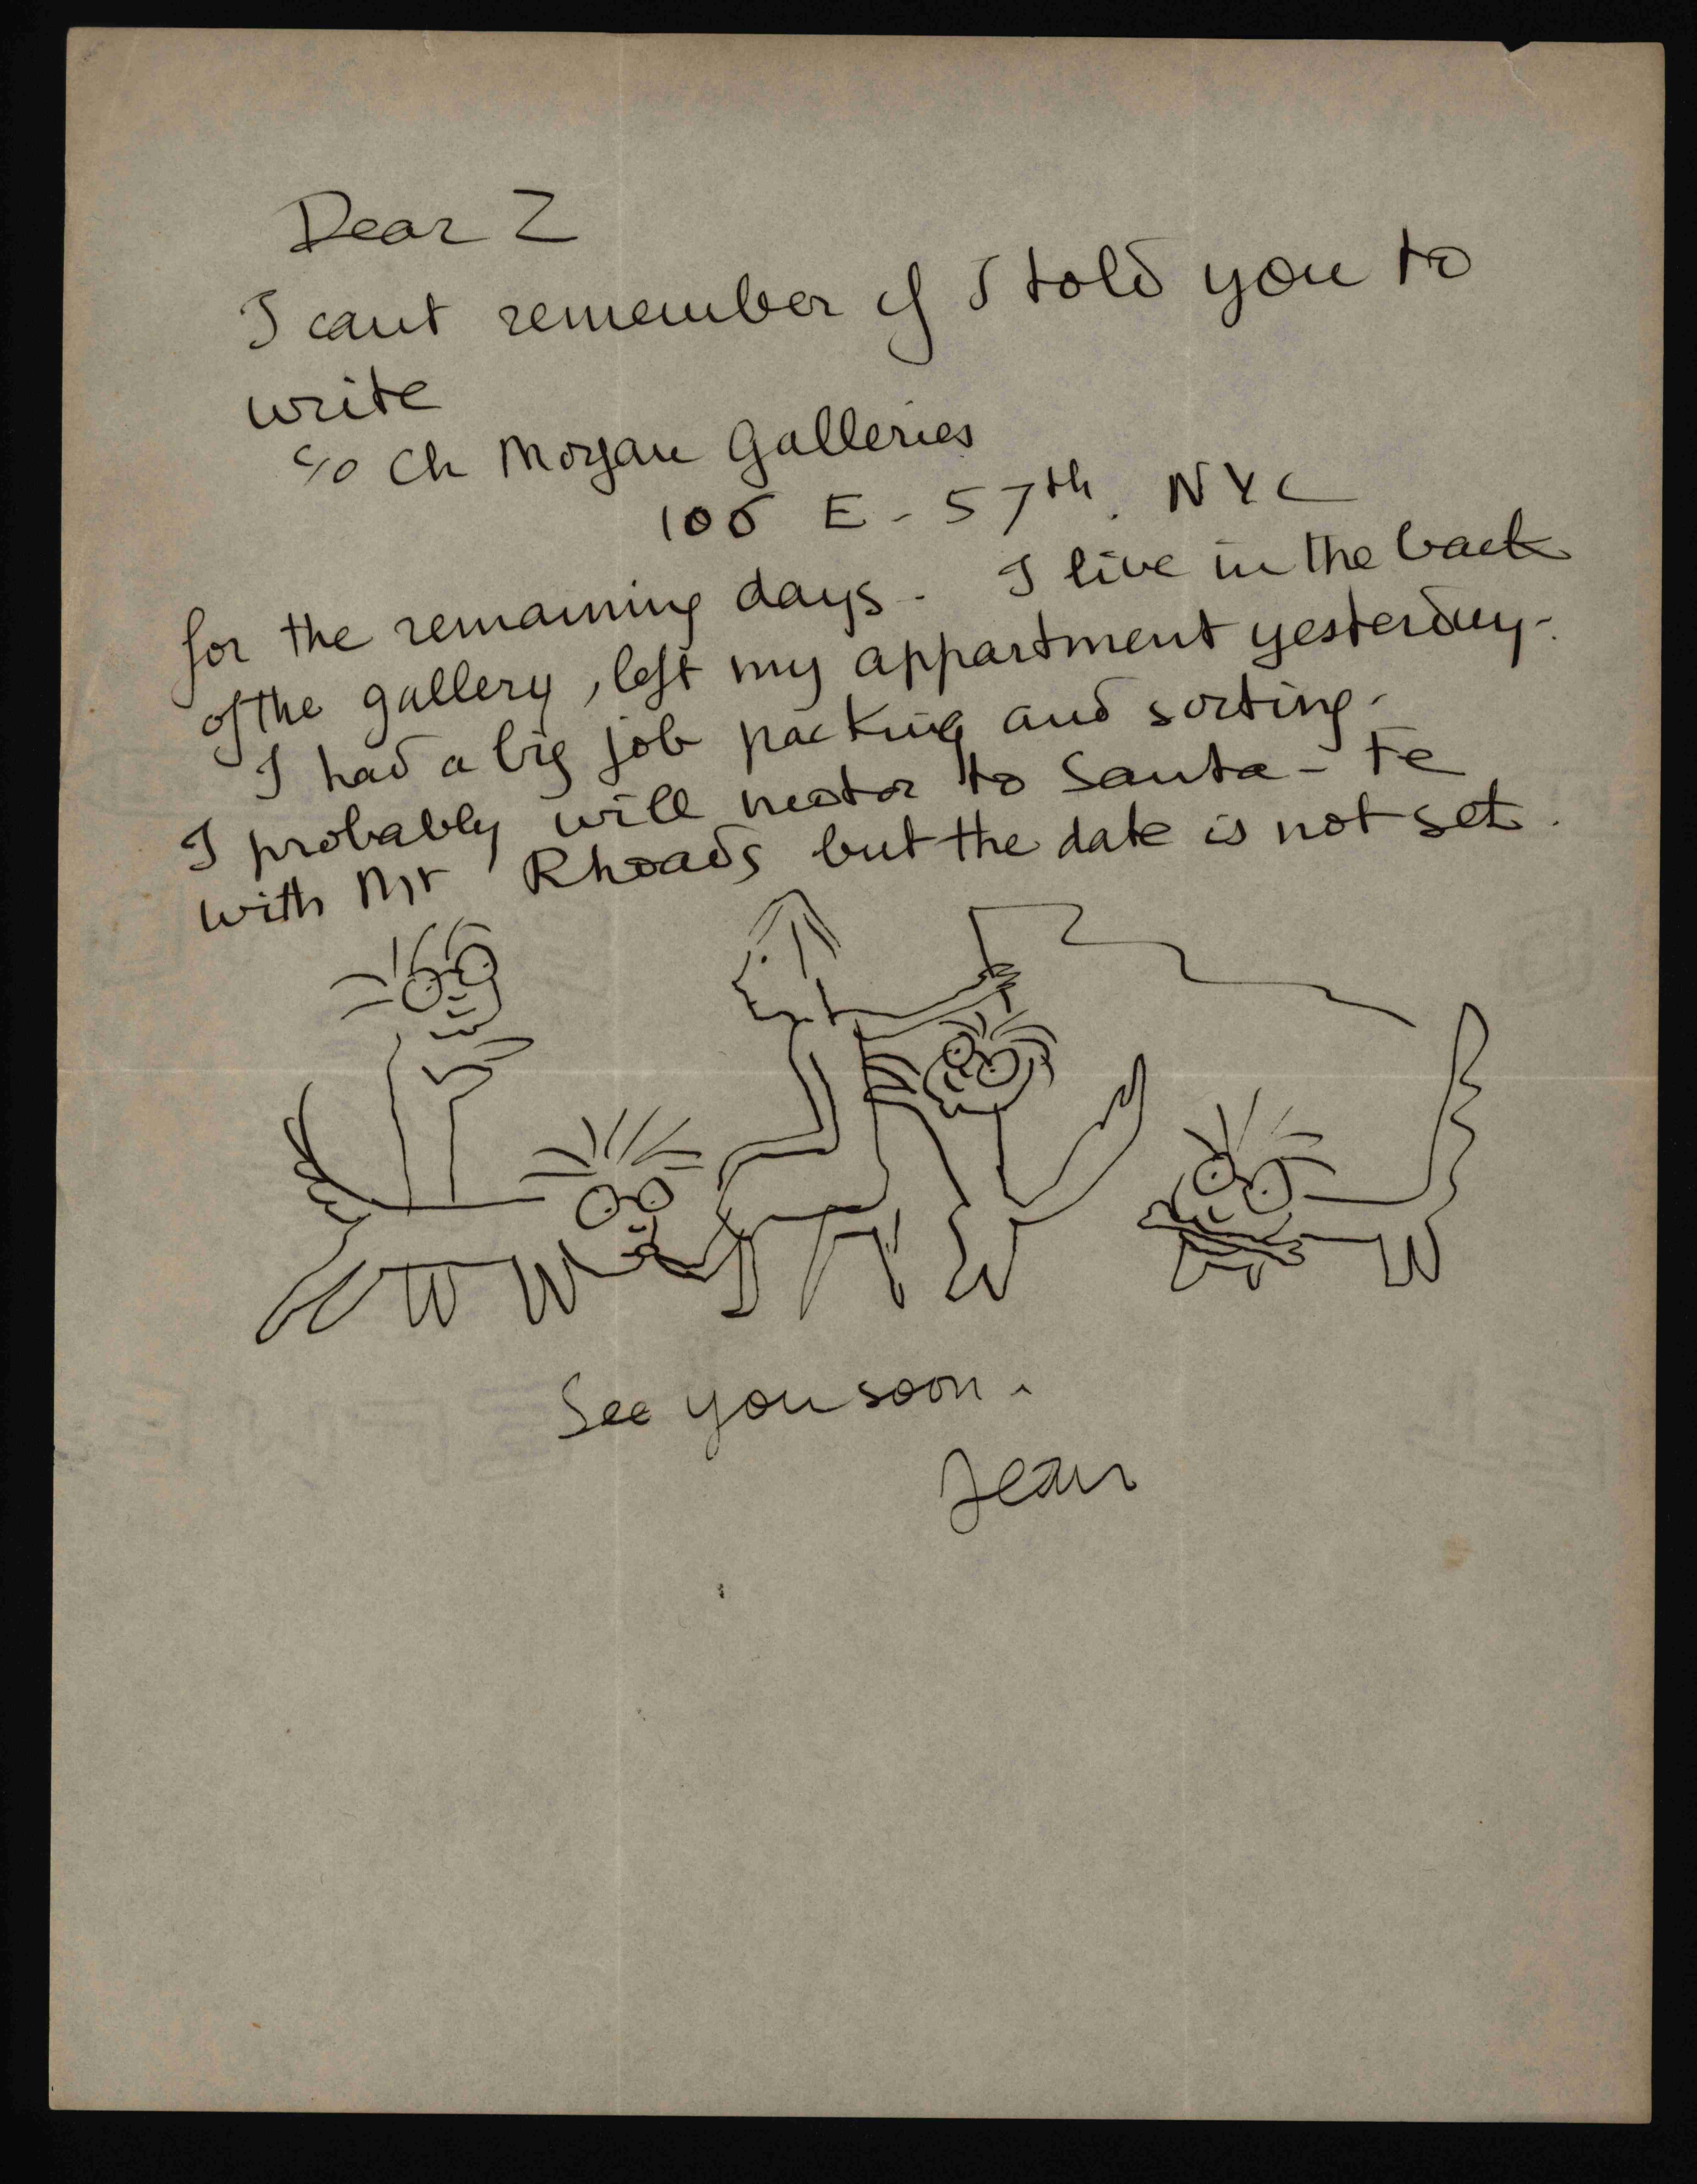 Dear Z
I cant remember if I told you to
write
c/o Ch Morgan Galleries
106 E - 57th. NYC
for the remaining days - I live in the back
of the gallery, left my appartment yesterday -
I had a big job packing and sorting -
I probably will motor to Santa - Fe
with Mr Rhoads but the date is not set.
See you soon -
Jean